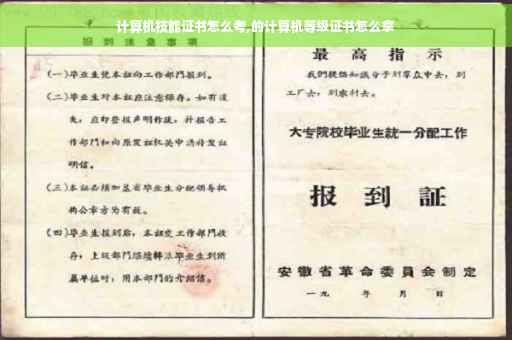 计算机技能证书怎么考,的计算机等级证书怎么拿
报到注意事项
(一)毕业生凭本证向工作部门报到。
(二)毕业生对本证应注意保存。如有遗
失,应即登报声明作废,并报告工
作部门和向原发证机关申请补发证
明信。
(三)本证必须加盖省毕业生分配领导机
构公章方为有效。
(四)毕业生报到后,本证交工作部门收
存;上级部门继续转派毕业生到所
属单位时,用本部门的介绍信。
最高指示
我们提倡知识分子到群众中去,到
工厂去,到农村去。
大专院校毕业生統一分配工作
报到証
安徽省革命委員会制定
一九 年 月 日